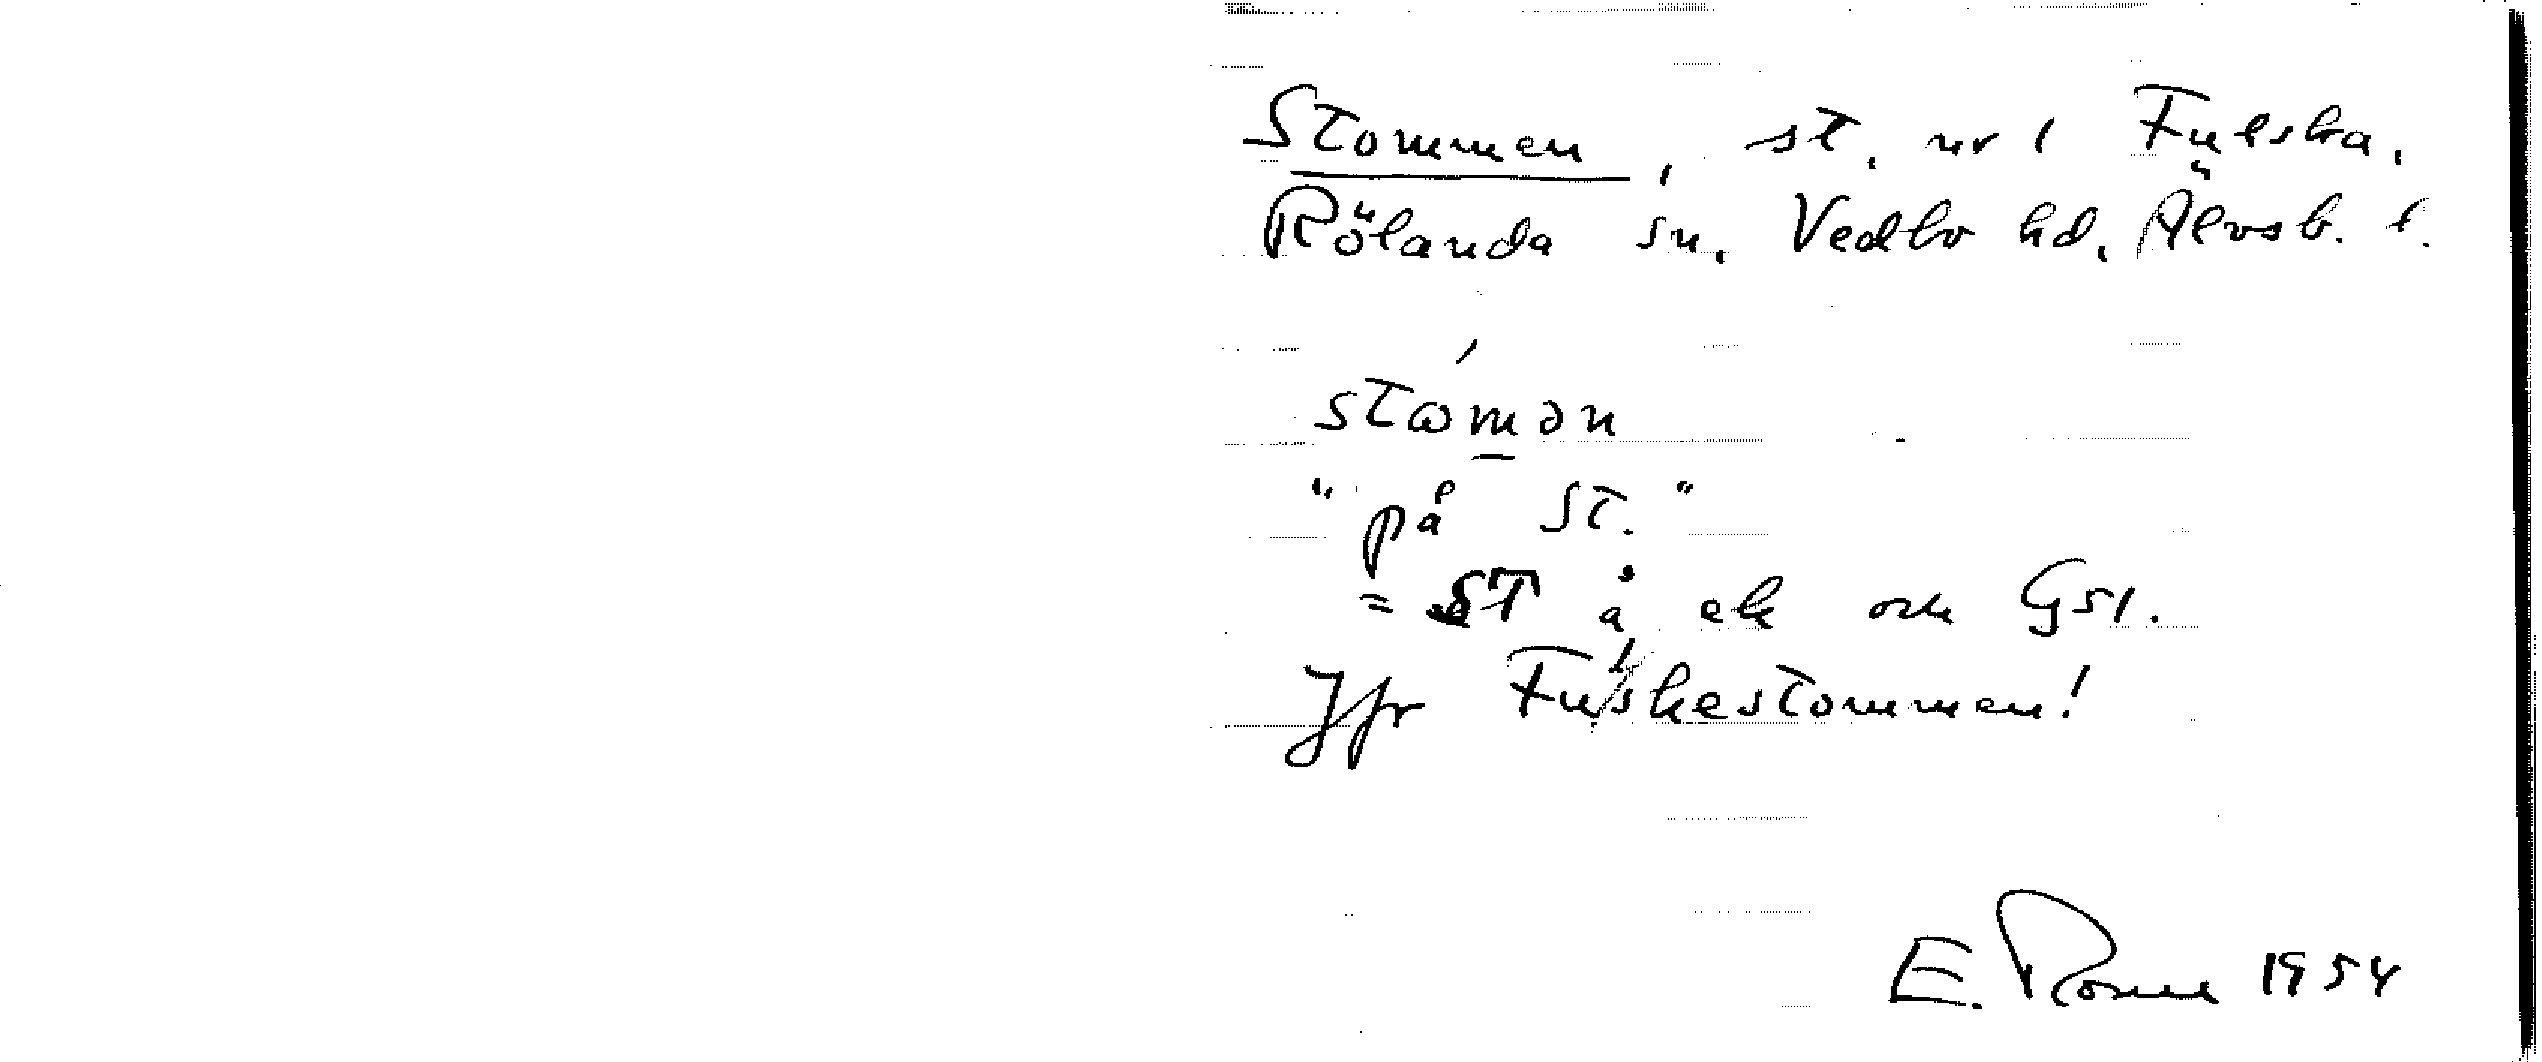 Stommen, st. nr 1 Fulska,
Rölanda sn. Vedbo hd, Älvsb. l.
stωmən
"på St."
= ST å ek och Gsl.
Jfr Fulskestommen!
E. 1954